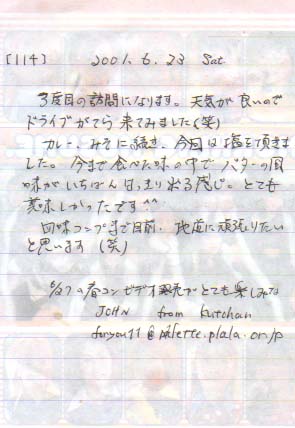 [114] 2001. 6. 23 Sat.
3度目の訪問になります。天気が良いので
ドライブがてら来てみました(笑)
カレー、みそに続き、今回は塩を頂きま
した。今まで食べた味の中で バターの風
味がいちばんはっきり出る感じ。とても
美味しかったです^^
味コンプまで目前、地道に頑張りたい
と思います(笑)
6/27の春コンビデオ発売がとても楽しみな
JOHN from Kutchan